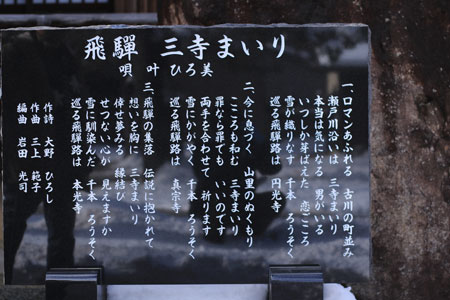 飛驒 三寺まいり
唄 叶 ひろ美
一、ロマンあふれる 古川の町並み
瀬戸川沿いは 三寺まいり
本当は気になる 男がいる
いつしか芽ばえた 恋ごころ
雪が織りなす 千本 ろうそく
巡る飛騨路は 円光寺
二、今に息づく 山里のぬくもり
こころも和む 三寺まいり
罪なら罪でも いいのです
両手を合わせて 祈ります
雪にかがやく 千本 ろうそく
巡る飛騨路は 真宗寺
三、飛騨の集落 伝説に抱かれて
想いを胸に 三寺まいり
倖せ夢みる 縁結び
せつない心が 見えますか
雪に馴染んだ 千本 ろうそく
巡る飛騨路は 本光寺
作詩 大野 ひろし
作曲 三上 範子
編曲 岩田 光司